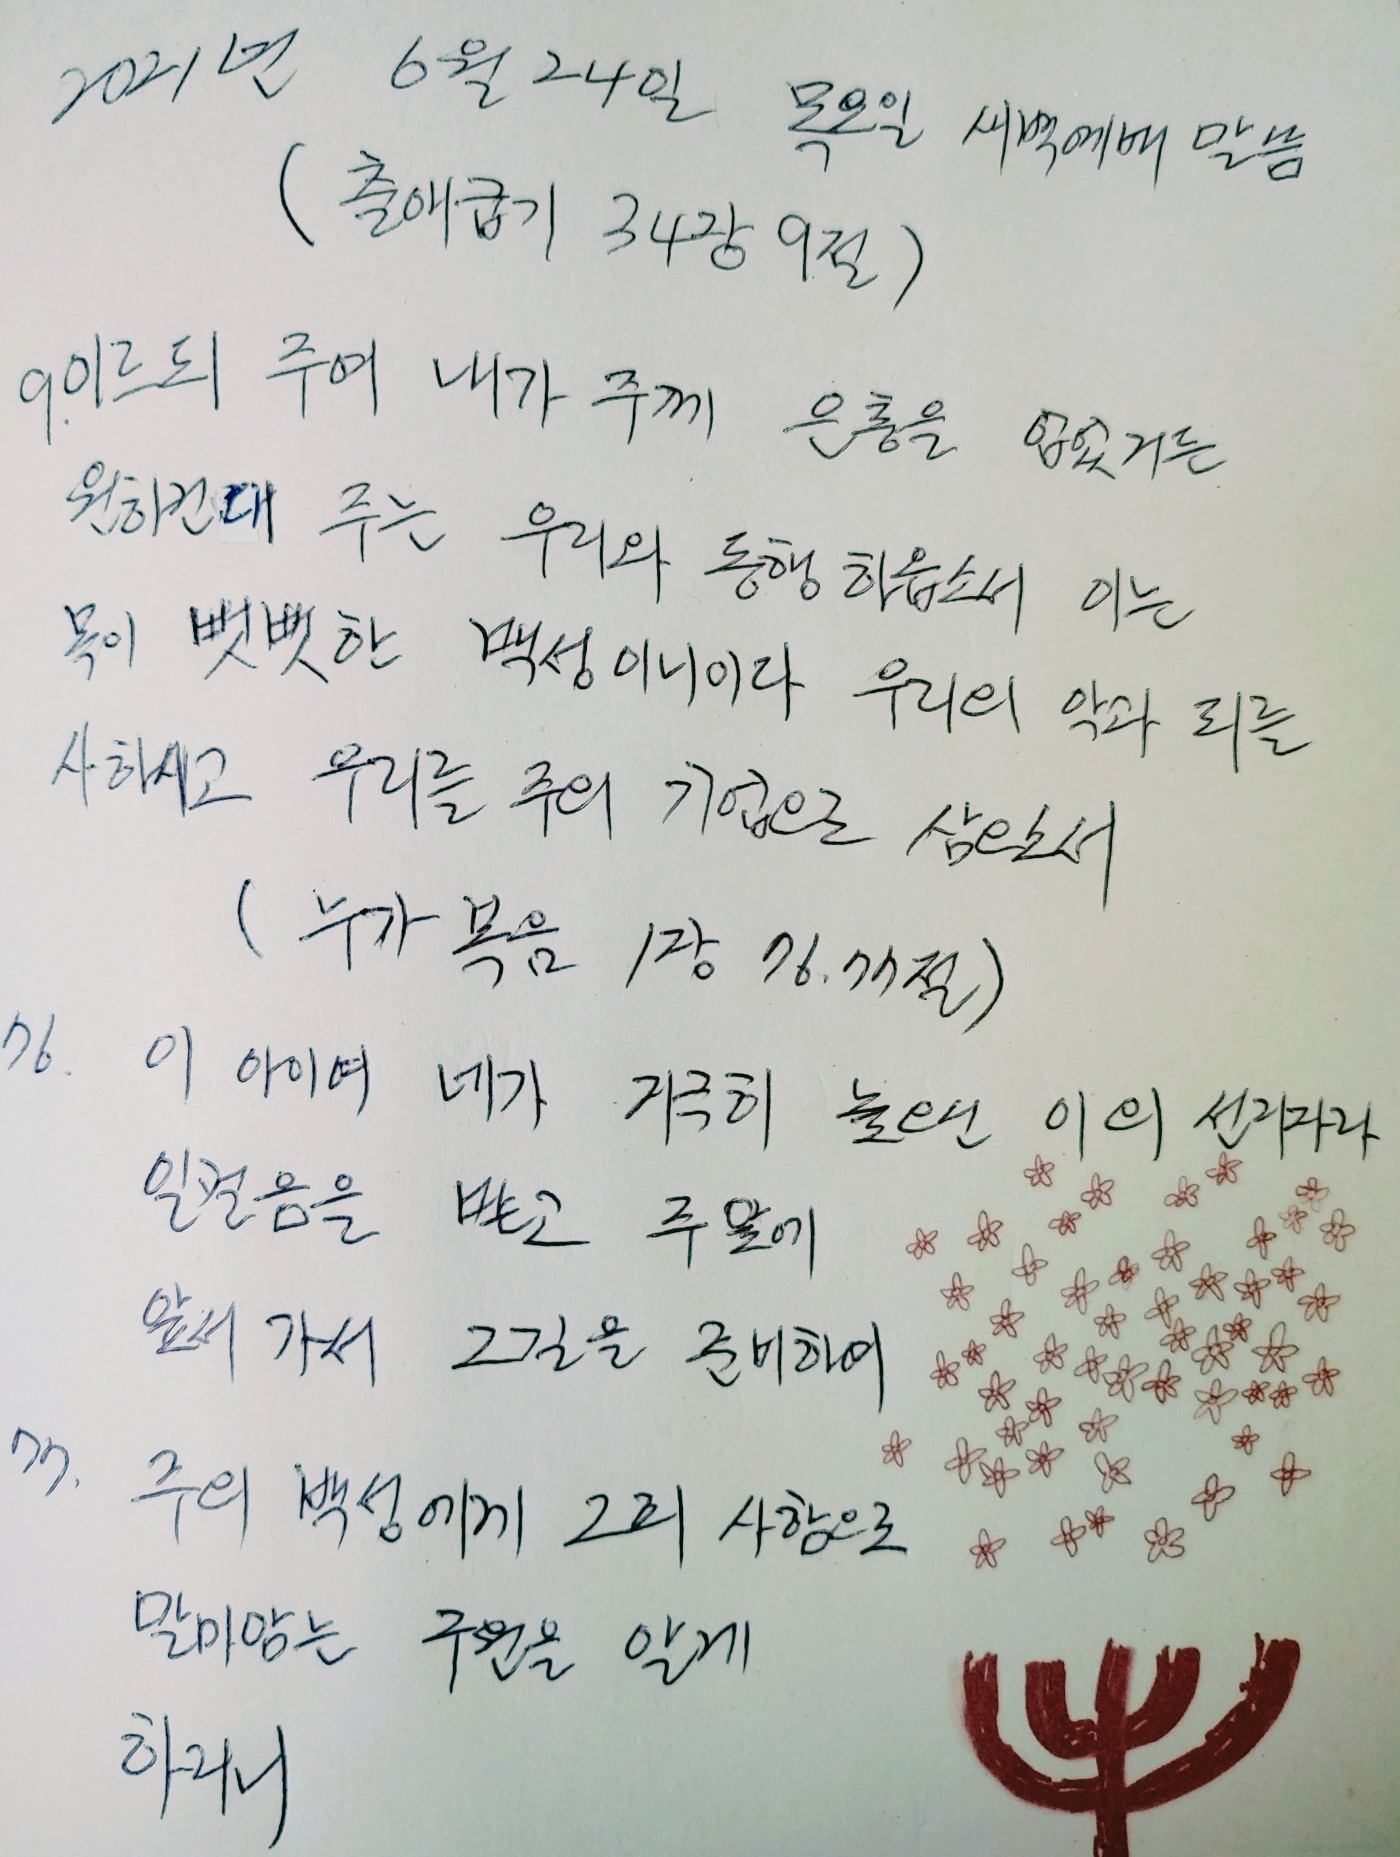 2021년 6월 24일 목요일 새벽예배 말씀
(출애굽기 34장 9절)
9.이르되 주여 내가 주께 은총을 입었거든
원하건대 주는 우리와 동행하옵소서 이는
목이 뻣뻣한 백성이니이다 우리의 악과 죄를
사하시고 우리를 주의 기업으로 삼으소서
(누가복음 1장 76.77절)
76. 이 아이여 네가 지극히 높으신 이의 선지자라
일컬음을 받고 주 앞에
앞서 가서 그길을 준비하여
77. 주의 백성에게 그죄 사함으로
말미암는 구원을 알게
하리니